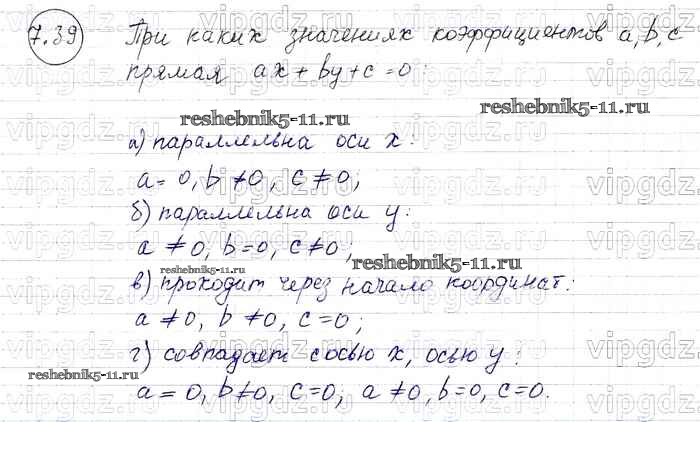 7.39 При каких значениях коэффициентов a, b, c
прямая ax + by + c = 0:
reshebnik5-11.ru
reshebnik5-11.ru
а) параллельна оси x:
a = 0, b ≠ 0, c ≠ 0;
б) параллельна оси y:
a ≠ 0, b = 0, c ≠ 0;
reshebnik5-11.ru
reshebnik5-11.ru
в) проходит через начало координат:
a ≠ 0, b ≠ 0, c = 0;
г) совпадает с осью x, осью y:
reshebnik5-11.ru
a = 0, b ≠ 0, c = 0; a ≠ 0, b = 0, c = 0.
vipgdz.ru